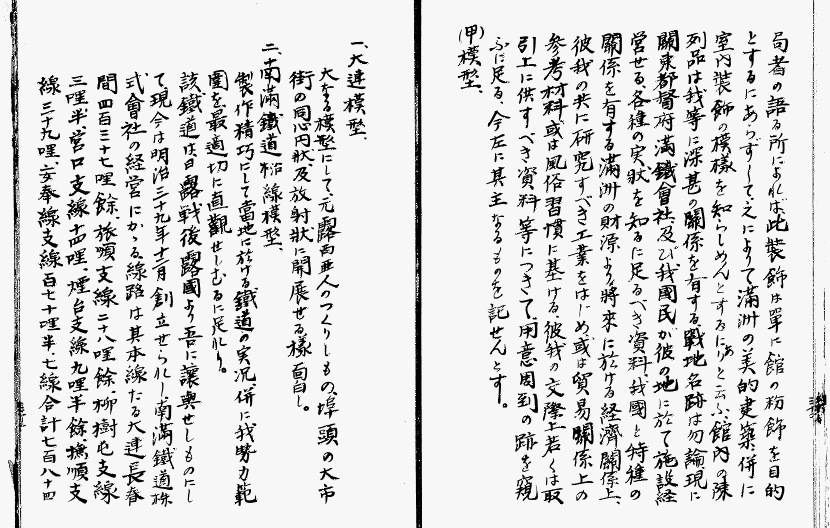 局者の語る所によれば此装飾は單に館の粉飾を目的
とするにあらずして之によりて滿洲の美的建築、併に
室内装飾の模様を知らしめんとするにありと云ふ、館内の陳
列品は我等に深甚の關係を有する戰地名跡は勿論現に
關東都督府滿鐵會社及び我國民が彼の地に於て施設経
営せる各種の実状を知るに足るべき資料、我國と特種の
關係を有する滿洲の財源より將來に於ける経済關係上、
彼我の共に研究すべき工業をはじめ或は貿易關係上の
参考材料或は風俗習慣に基ける彼我の交際上若くは取
引上に供すべき資料等につきて用意周到の跡を窺
ふに足る、今左に其主なるものを記せんとす。
(甲)模型、
一、大連模型、
大なる模型にして、元露西亜人のつくりしもの、埠頭の大市
街の同心円状及放射状に開展せる様面白し。
二、南滿鐵道沿線模型、
製作精巧にして當地に於ける鐵道の実況、併に我勢力範
囲を最適切に直觀せしむるに足れり。
該鐵道は日露戰後露國より吾に讓與せしものにし
て現今は明治三十九年十二月創立せられし南滿鐵道株
式會社の経営にかゝる線路は其本線たる大連長春
間四百三十七哩餘、旅順支線二十八哩餘、柳樹屯支線
三哩半、営口支線十四哩、煙台支線九哩半餘、撫順支
線三十九哩、安奉線支線百七十哩半、七線合計七百八十四